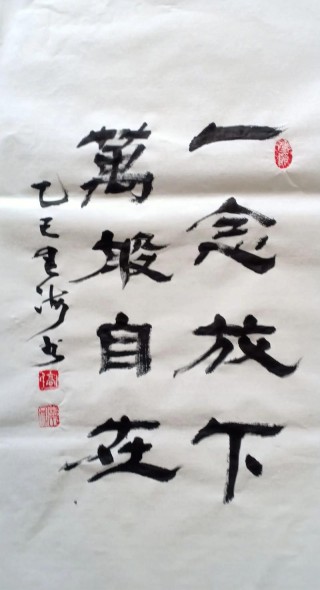 一念放下
萬般自在
乙巳
书